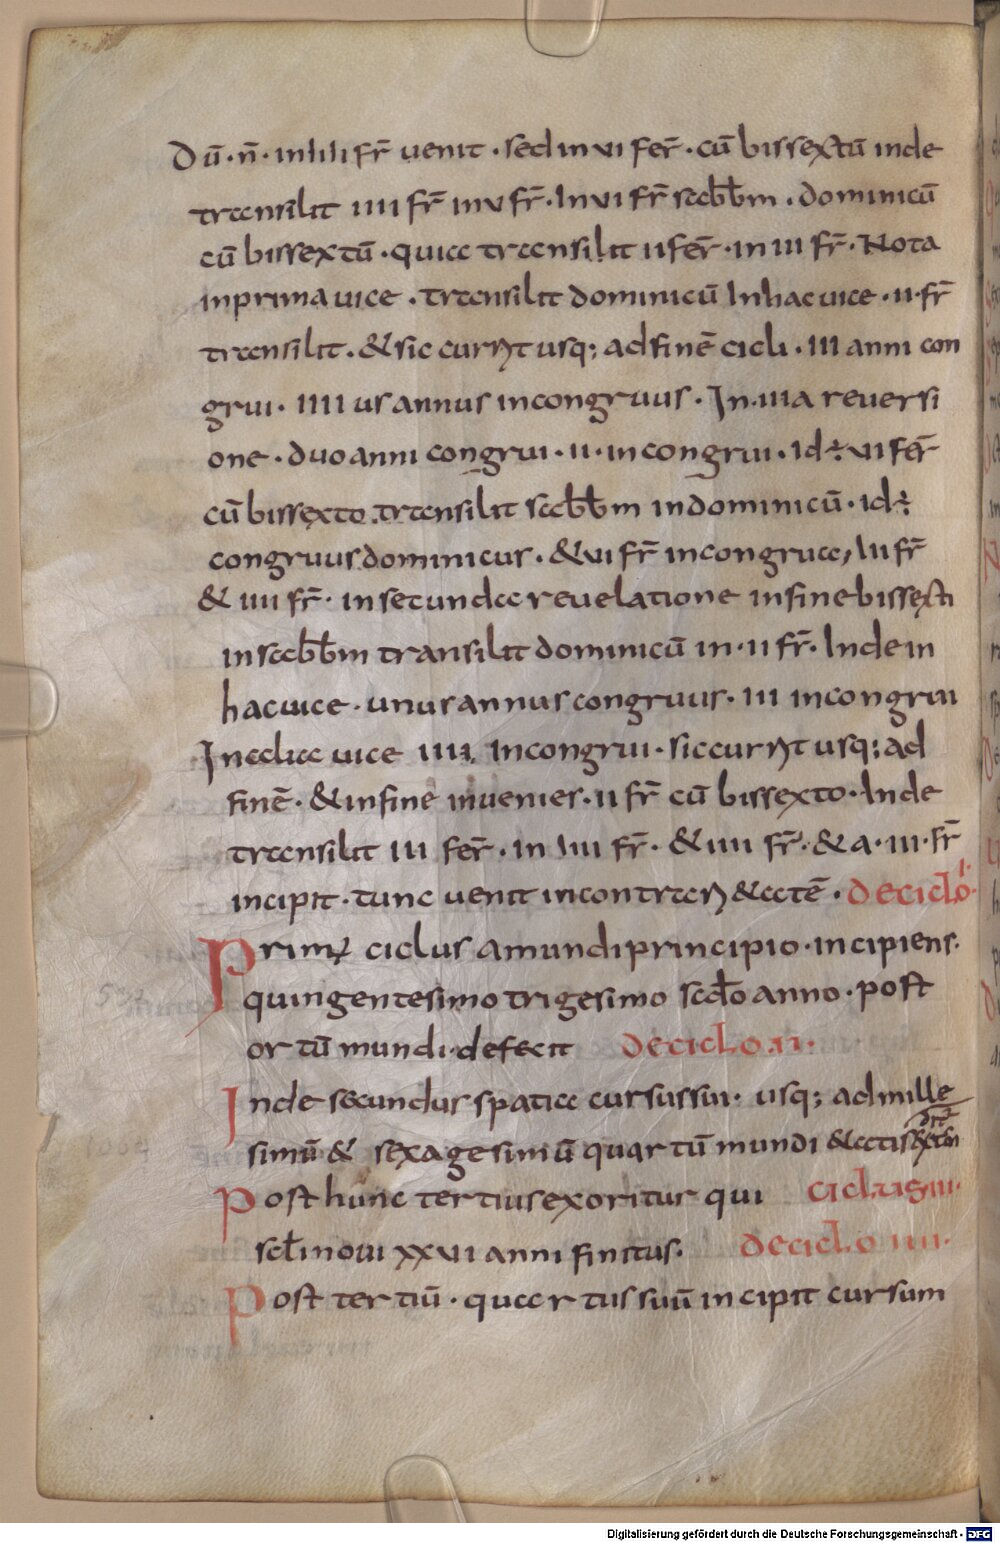 Dū · n̄ · in iiii fr̄ uenit · sed in vi fer̄ · cū bissextū inde
transilit iiii fr̄ in v fr̄ · In vi fr̄ sabb̄m · dominicū
cū bissextū · quia transilit ii fer̄ · in iii fr̄ · Nota
in prima uice · transilit dominicū In hac uice · ii · fr̄
transilit · & sic currnt usq; ad finē cicli · III anni con
grui · IIII us annus incongruus · In · iiia reuersi
one · duo anni congrui · ii · incongrui · id÷ vi fer̄
cū bissexto transilit sabb̄m in dominicū · id÷
congruus dominicus · & vi fr̄ incongrua, iii fr̄
& iiii fr̄ · in secunda reuelatione in fine bissexti
in sabb̄m transilit dominicū in · ii fr̄ · Inde in
hac uice · unus annus congruus · III incongrui
In alia uice IIII incongrui · sic currnt usq; ad
finē · & in fine inuenies · ii fr̄ cū bissexto · Inde
transilit III fer̄ · In IIII fr̄ · & IIII fr̄ · & a · III · fr̄
incipit · tunc uenit in contrar & aetē · de ciclo · i ·
Prim; ciclus a mundi principio · incipiens ·
quingentesimo trigesimo scd̄o anno · post
ortū mundi · defecit de ciclo · ii ·
Inde secundus spatia cursus sui · usq; ad mille
simū & sexagesimū quartū mundi & aetis
Post hunc tertius exoritur qui
sēl in oui xxvi anni finitus · de ciclo IIII ·
Post tertiū · quartus suū incipit cursum
Digitalisierung gefördert durch die Deutsche Forschungsgemeinschaft - DFG